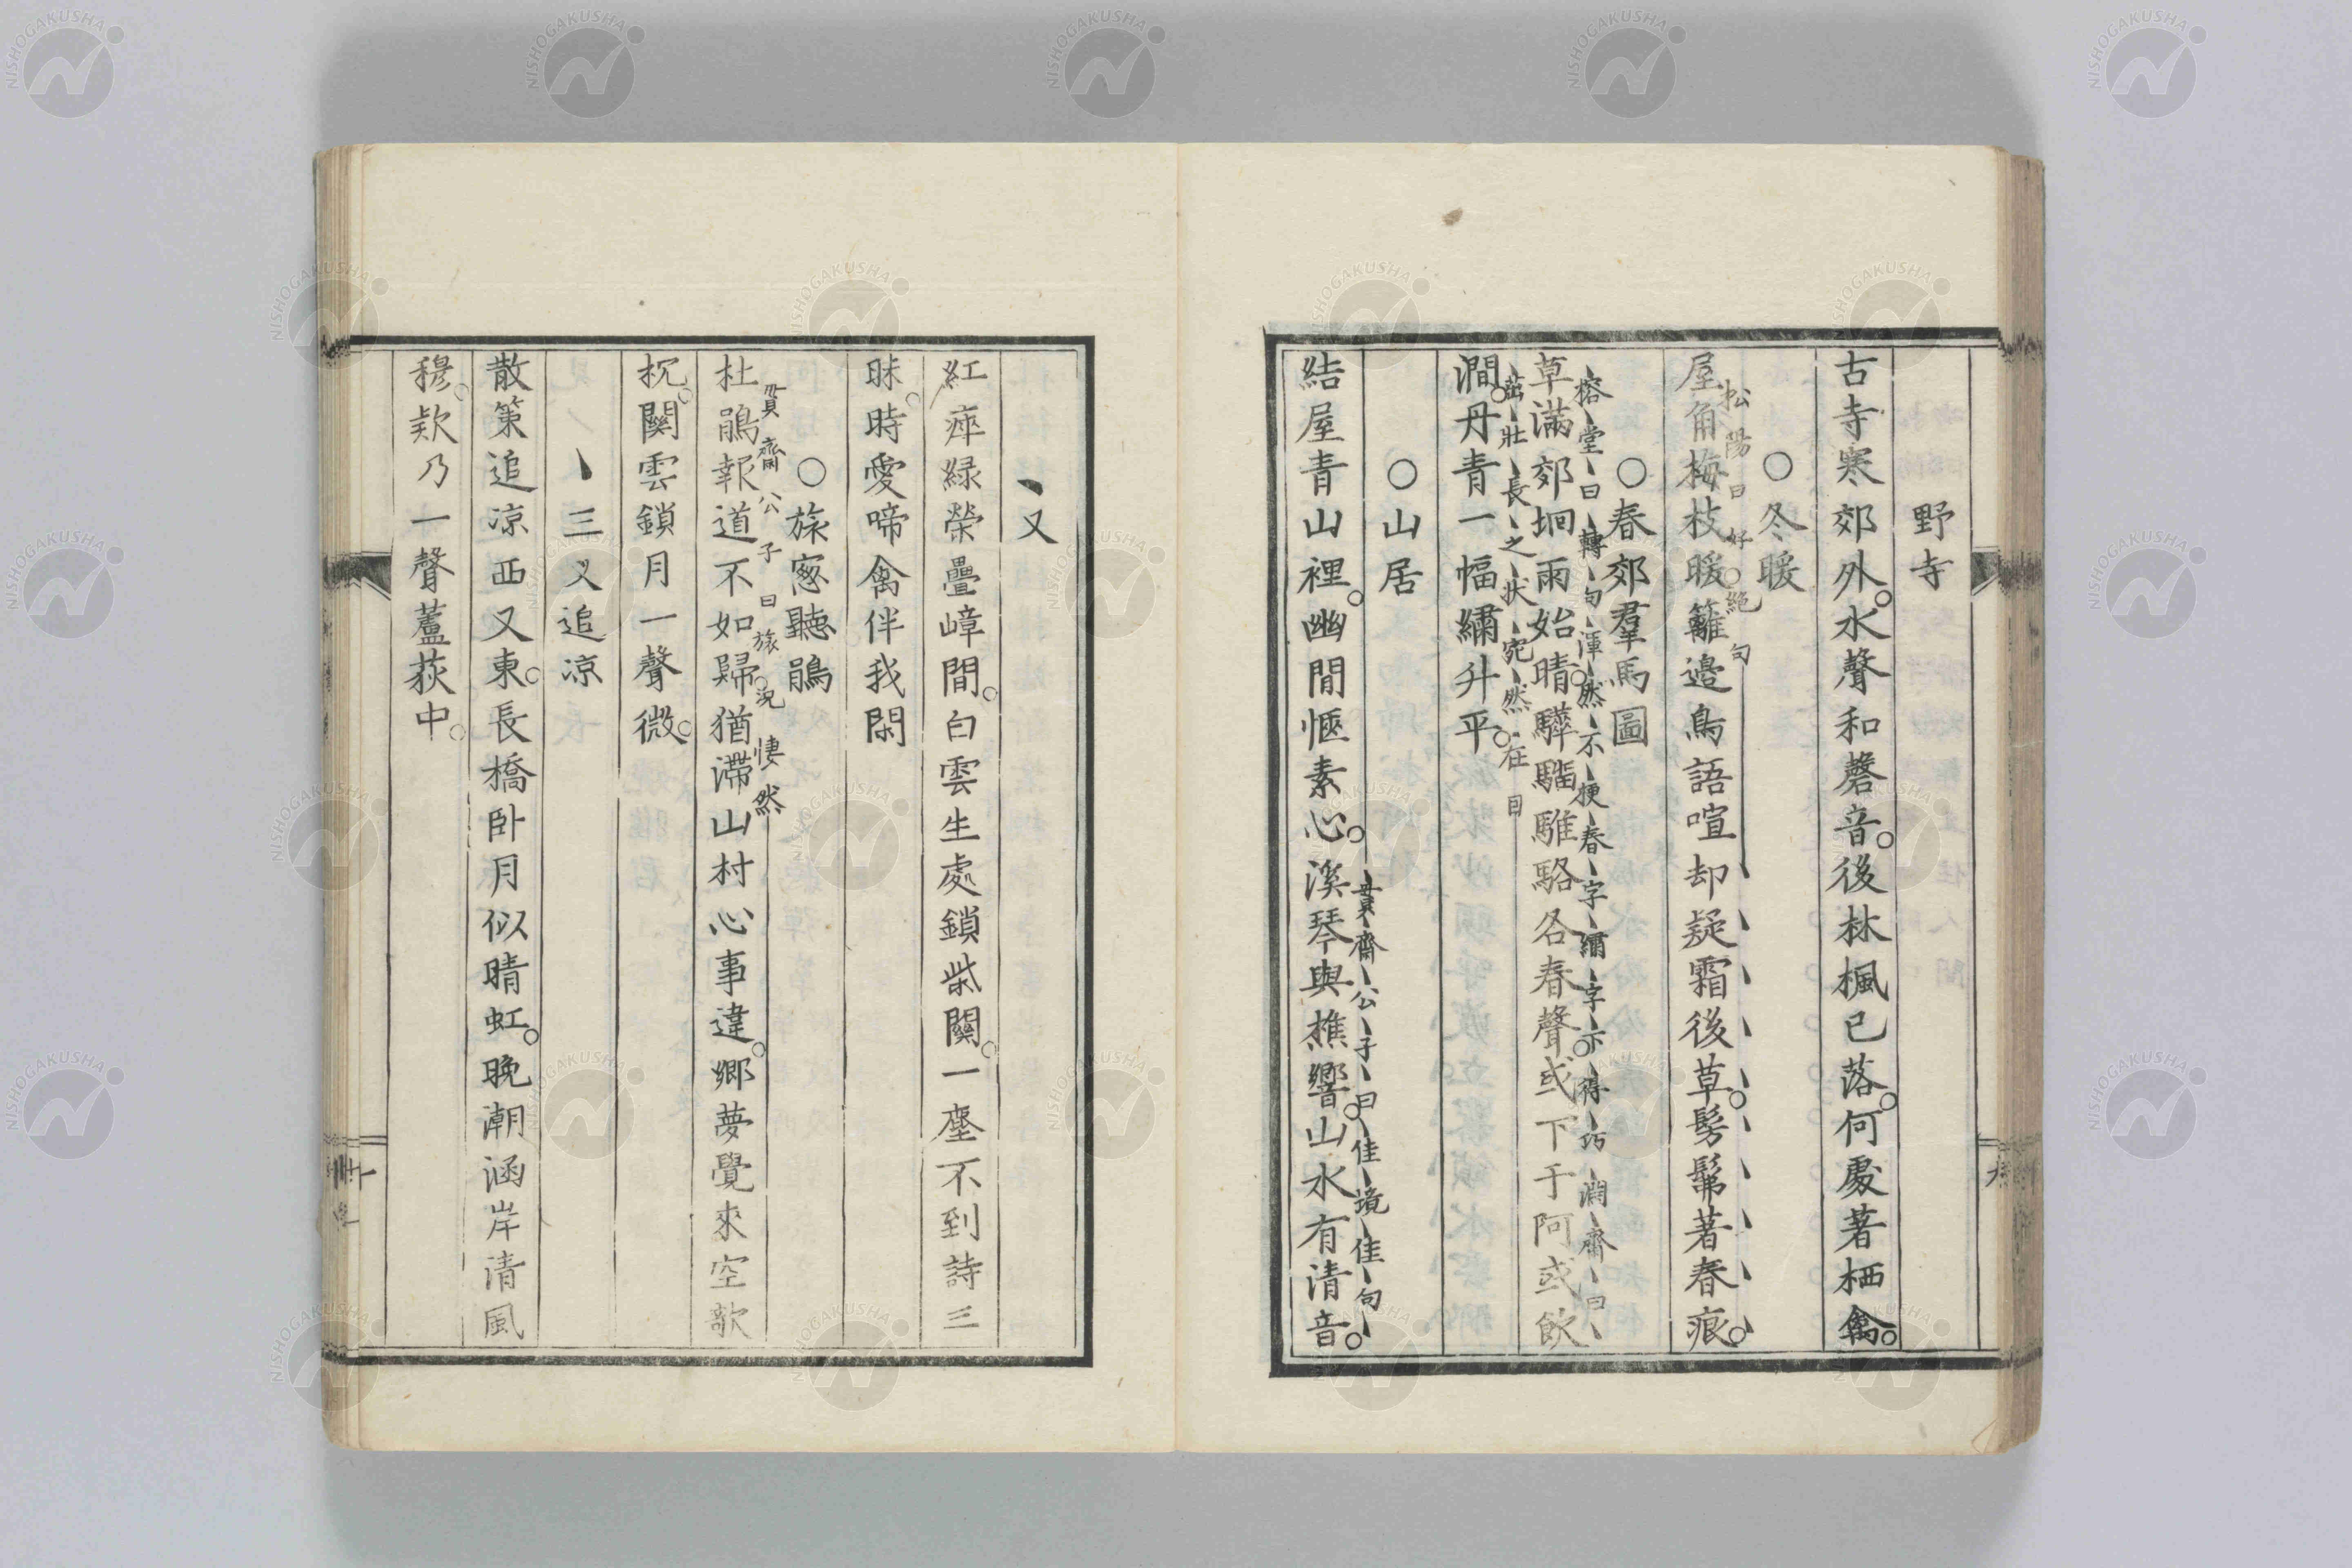 野寺
古寺寒郊外。水聲和磬音。後林楓已落。何處著栖禽。
○冬暖
松陽曰好絶句
屋角梅枝暖籬邉鳥語喧却疑霜後草。髣髴著春痕。
○春郊羣馬圖
榕堂曰轉句渾然不梗春字繡字亦得巧 澗齋曰
草滿郊坰雨始晴。驊騮騅駱各春聲。或下于阿或飲
茁壯長之状宛然在目
澗。丹青一幅繡升平。
○山居
蕢齋公子曰佳境佳句
結屋青山裡。幽閒愜素心。溪琴與樵響。山水有清音。
又
紅瘁緑榮疊嶂間。白雲生處鎖柴關。一塵不到詩三
昧。時愛啼禽伴我閑
○旅窓聽鵑
蕢齋公子曰旅況悽然
杜鵑報道不如歸。猶滯山村心事違。郷夢覺來空欹
枕。關雲鎖月一聲微。
三叉追凉
散策追凉西又東。長橋卧月似晴虹。晩潮涵岸清風
穆。欵乃一聲蘆荻中。
NISHOGAKUSHA